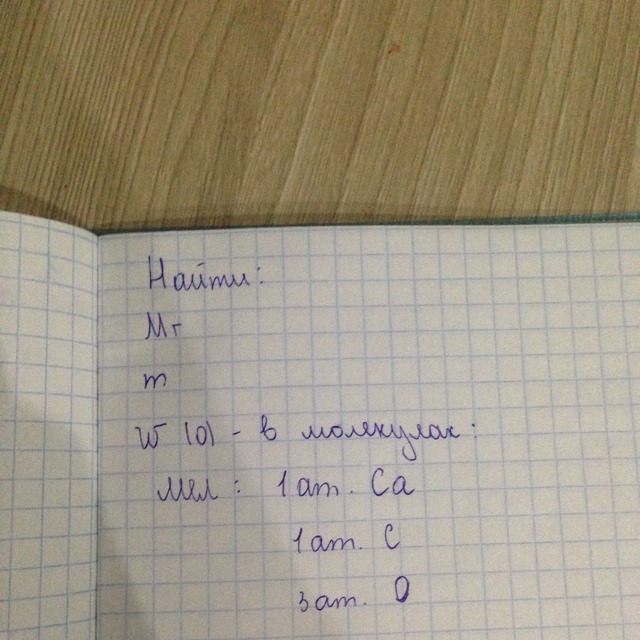 Найти:
Mr
m
W (O) - в молекулах:
мел: 1 ат. Ca
1 ат. C
3 ат. O